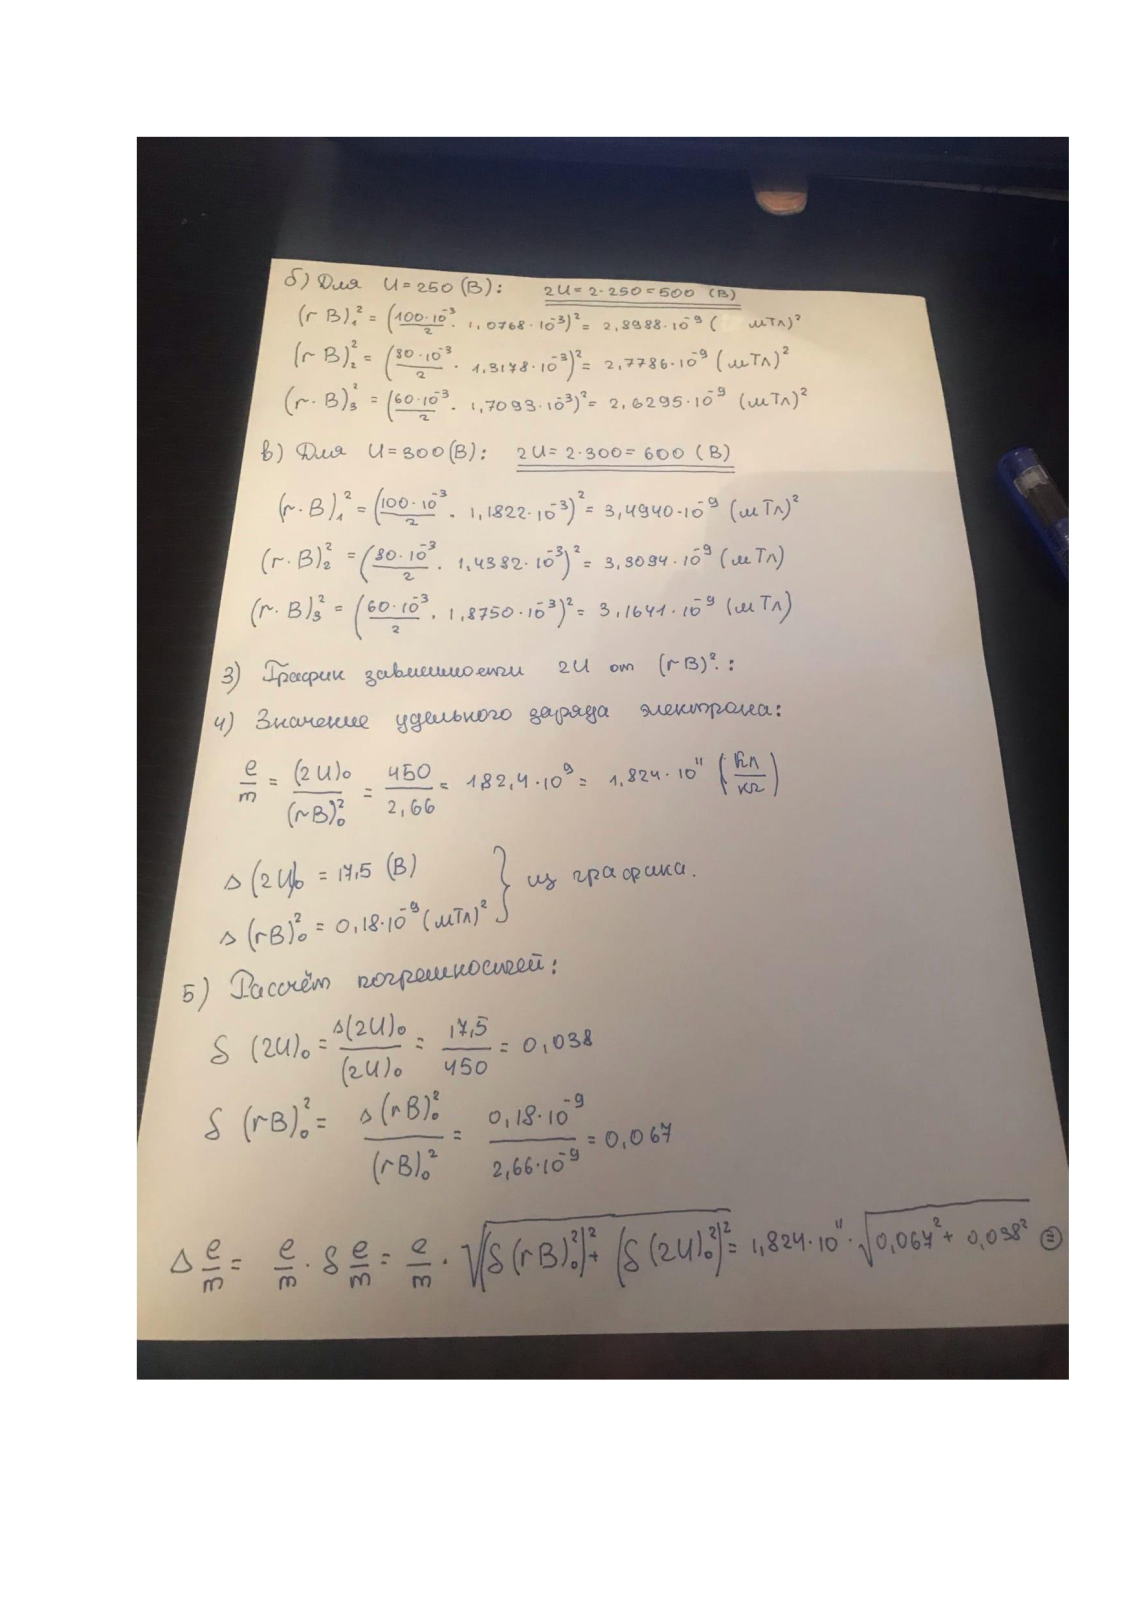 б) Для U=250 (В): 2U=2·250=500 (В)
(r B)₁² = (100·10⁻³/2 · 1,0768·10⁻³)² = 2,8988·10⁻⁹ ( мТл)²
(r B)₂² = (80·10⁻³/2 · 1,3178·10⁻³)² = 2,7786·10⁻⁹ (мТл)²
(r·B)₃² = (60·10⁻³/2 · 1,7093·10⁻³)² = 2,6295·10⁻⁹ (мТл)²
в) Для U=300 (В): 2U=2·300=600 (В)
(r·B)₁² = (100·10⁻³/2 · 1,1822·10⁻³)² = 3,4940·10⁻⁹ (мТл)²
(r·B)₂² = (80·10⁻³/2 · 1,4382·10⁻³)² = 3,3094·10⁻⁹ (мТл)
(r·B)₃² = (60·10⁻³/2 · 1,8750·10⁻³)² = 3,1641·10⁻⁹ (мТл)
3) График зависимости 2U от (rB)².:
4) Значение удельного заряда электрона:
e/m = (2U)₀/(rB)₀² = 450/2,66 = 182,4·10⁹ = 1,824·10¹¹ (Кл/кг)
Δ(2U)₀ = 17,5 (В) } из графика.
Δ(rB)₀² = 0,18·10⁻⁹ (мТл)²
5) Рассчёт погрешностей:
δ (2U)₀ = Δ(2U)₀/(2U)₀ = 17,5/450 = 0,038
δ (rB)₀² = Δ(rB)₀²/(rB)₀² = 0,18·10⁻⁹/2,66·10⁻⁹ = 0,067
Δ e/m = e/m · δ e/m = e/m · √(δ(rB)₀²)² + (δ(2U)₀²)² = 1,824·10¹¹ · √0,067² + 0,038² ⊜